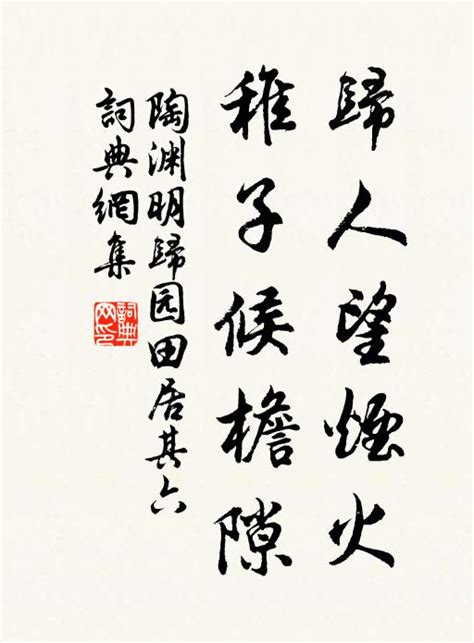 歸人望煙火
稚子候檐隙
陶渊明歸园田居其六
詞典網集
詞典网印